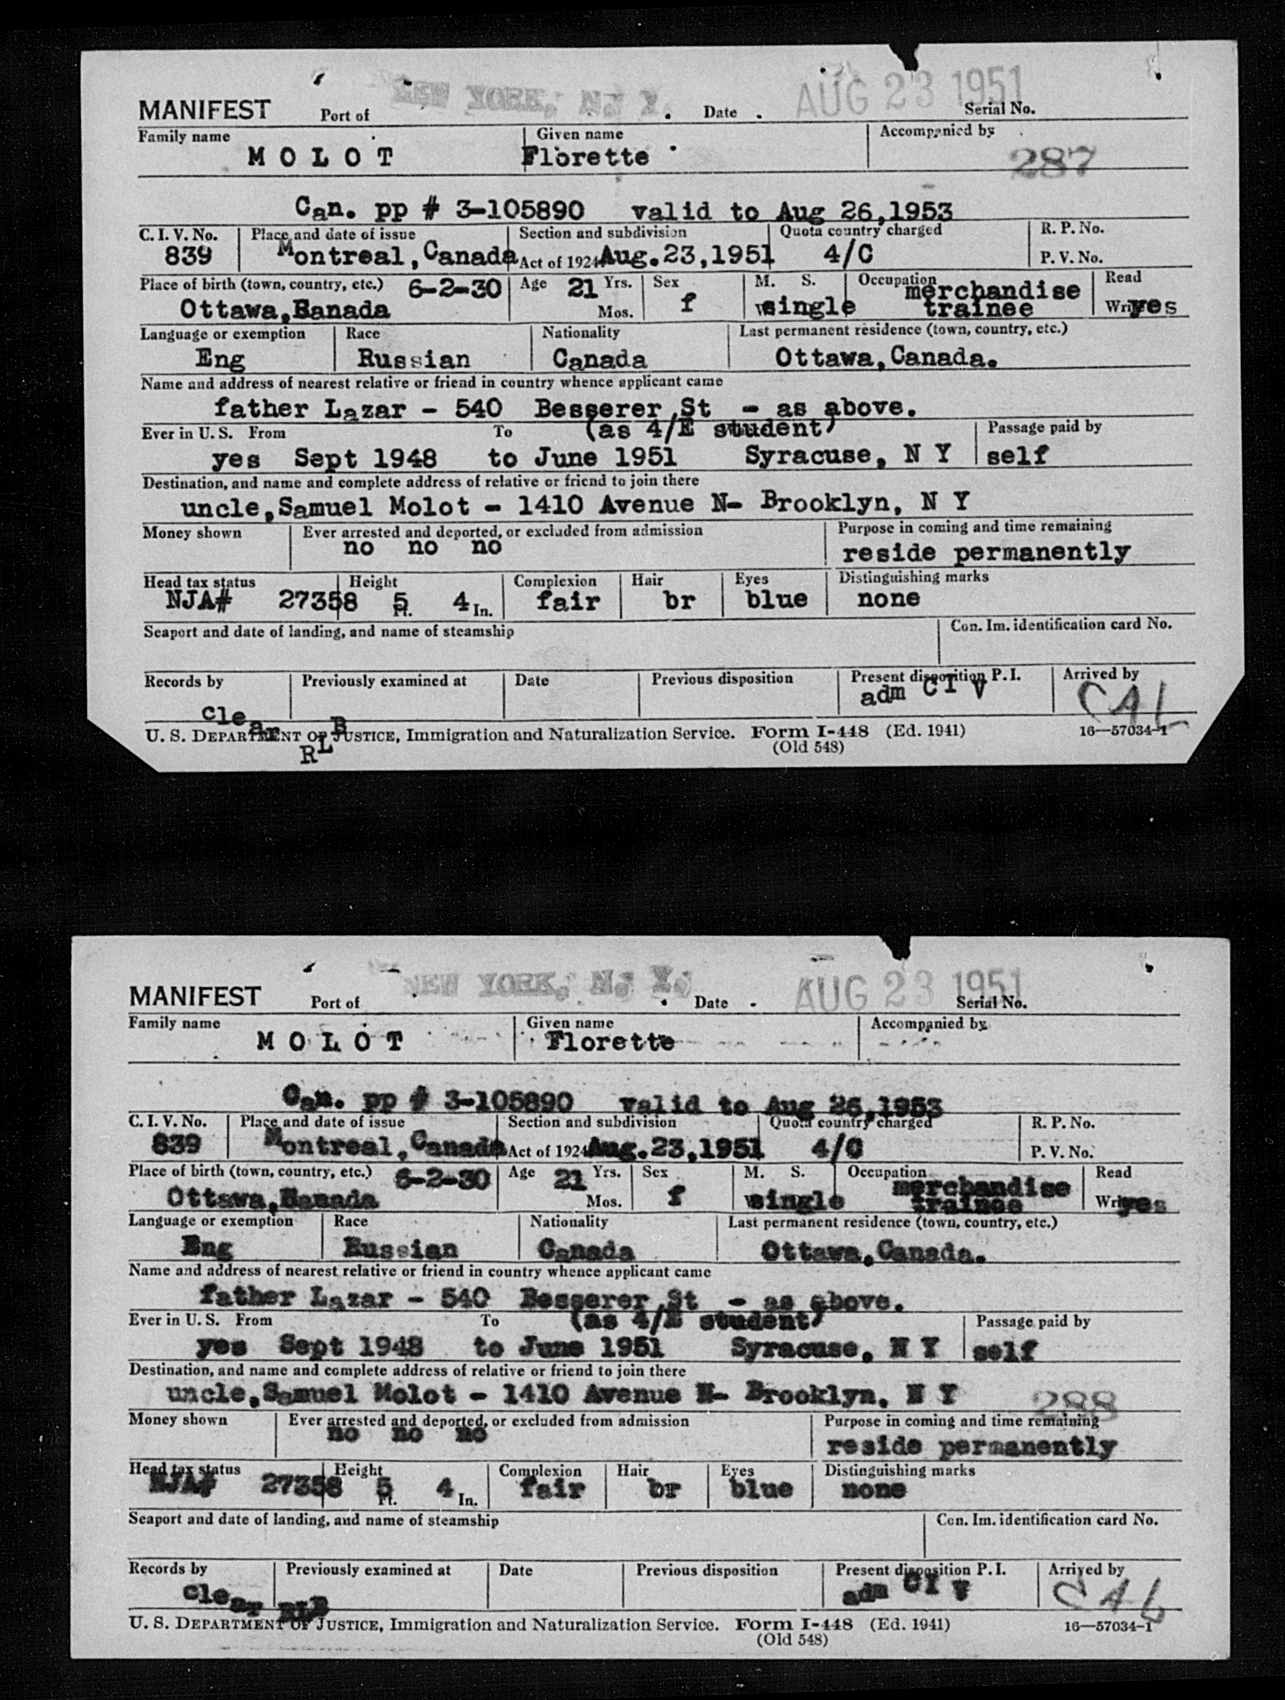 NEW YORK, N. Y. AUG 23 1951
MANIFEST Port of Date Serial No.
Family name Given name Accompanied by
M O L O T Florette 287
Can. pp # 3-105890 valid to Aug 26,1953
C. I. V. No. Place and date of issue Section and subdivision Quota country charged R. P. No.
839 Montreal, Canada Act of 1924 Aug.23,1951 4/C P. V. No.
Place of birth (town, country, etc.) 6-2-30 Age 21 Yrs. Sex M. S. Occupation merchandise Read
Ottawa,Banada Mos. f single trainee Write yes
Language or exemption Race Nationality Last permanent residence (town, country, etc.)
Eng Russian Canada Ottawa,Canada.
Name and address of nearest relative or friend in country whence applicant came
father Lazar - 540 Besserer St - as above.
Ever in U. S. From To (as 4/E student) Passage paid by
yes Sept 1948 to June 1951 Syracuse, N Y self
Destination, and name and complete address of relative or friend to join there
uncle,Samuel Molot - 1410 Avenue N- Brooklyn, N Y
Money shown Ever arrested and deported, or excluded from admission Purpose in coming and time remaining
no no no reside permanently
Head tax status Height Complexion Hair Eyes Distinguishing marks
NJA# 27358 5 Ft. 4 In. fair br blue none
Seaport and date of landing, and name of steamship Con. Im. identification card No.
Records by Previously examined at Date Previous disposition Present disposition P. I. Arrived by
clear RLB adm C I V CAL
U. S. DEPARTMENT OF JUSTICE, Immigration and Naturalization Service. Form I-448 (Ed. 1941) 16—57034-1
(Old 548)
NEW YORK, N. Y. AUG 23 1951
MANIFEST Port of Date Serial No.
Family name Given name Accompanied by
M O L O T Florette
Can. pp # 3-105890 valid to Aug 26,1953
C. I. V. No. Place and date of issue Section and subdivision Quota country charged R. P. No.
839 Montreal, Canada Act of 1924 Aug.23,1951 4/C P. V. No.
Place of birth (town, country, etc.) 6-2-30 Age 21 Yrs. Sex M. S. Occupation merchandise Read
Ottawa,Banada Mos. f single trainee Write yes
Language or exemption Race Nationality Last permanent residence (town, country, etc.)
Eng Russian Canada Ottawa,Canada.
Name and address of nearest relative or friend in country whence applicant came
father Lazar - 540 Besserer St - as above.
Ever in U. S. From To (as 4/E student) Passage paid by
yes Sept 1948 to June 1951 Syracuse, N Y self
Destination, and name and complete address of relative or friend to join there
uncle,Samuel Molot - 1410 Avenue N- Brooklyn, N Y 288
Money shown Ever arrested and deported, or excluded from admission Purpose in coming and time remaining
no no no reside permanently
Head tax status Height Complexion Hair Eyes Distinguishing marks
NJA# 27358 5 Ft. 4 In. fair br blue none
Seaport and date of landing, and name of steamship Con. Im. identification card No.
Records by Previously examined at Date Previous disposition Present disposition P. I. Arrived by
clear RLB adm C I V CAL
U. S. DEPARTMENT OF JUSTICE, Immigration and Naturalization Service. Form I-448 (Ed. 1941) 16—57034-1
(Old 548)